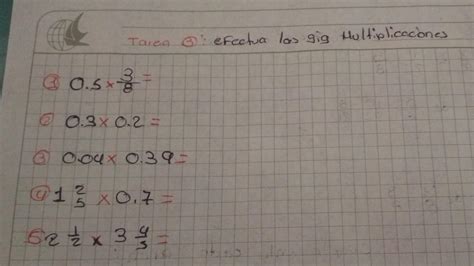 Tarea ③: efectua las sig Multiplicaciones
① 0.5 × 3/8 =
② 0.3 × 0.2 =
③ 0.04 × 0.39 =
④ 1 2/5 × 0.7 =
5 2 1/2 × 3 4/5 =